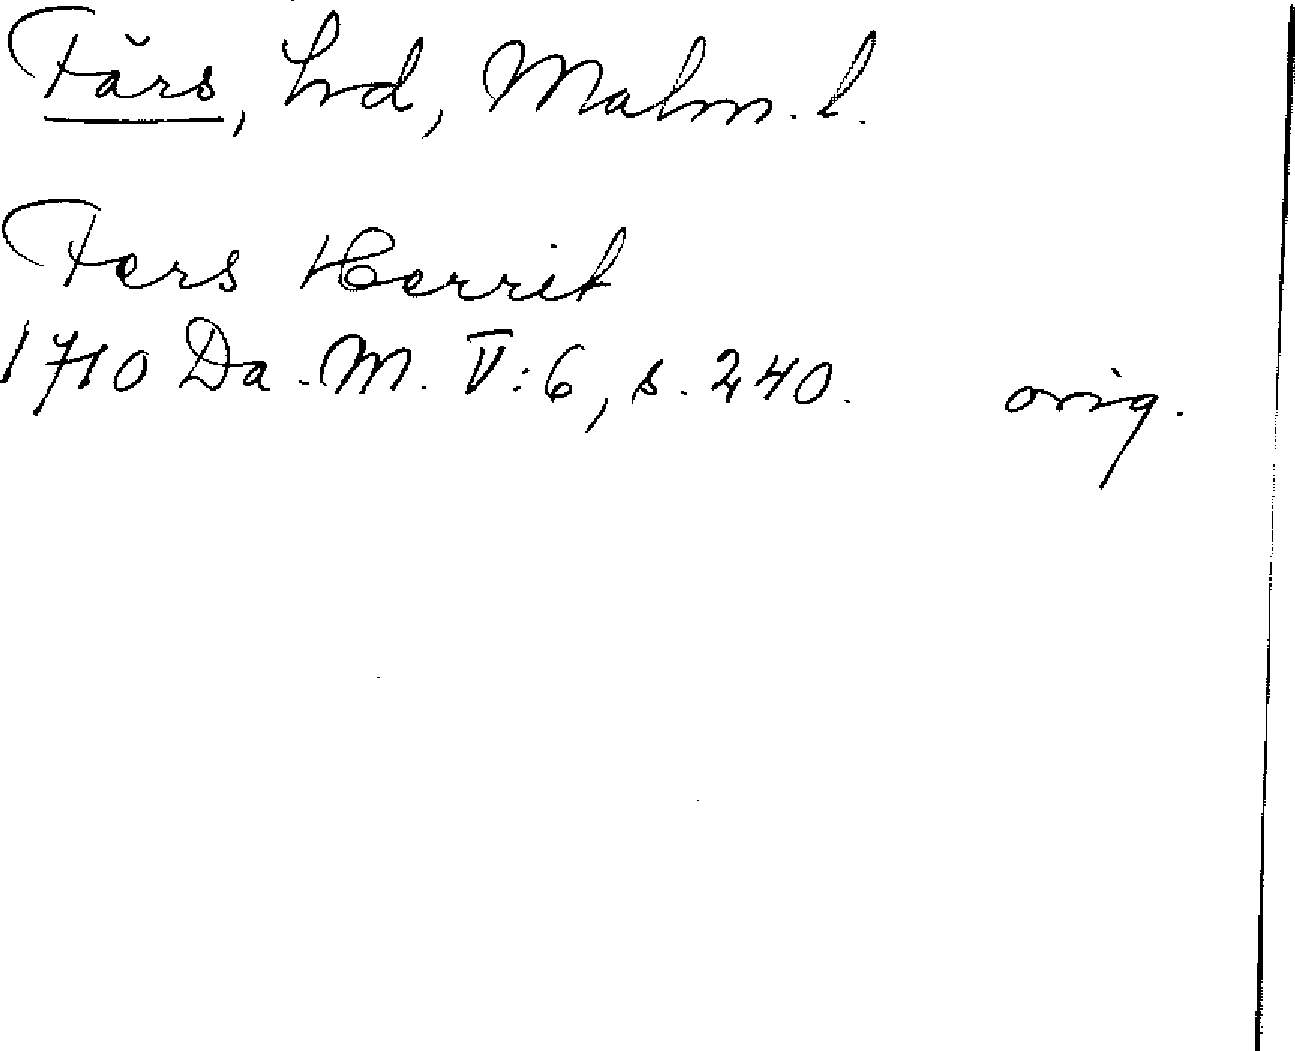 Färs, hrd, Malm. l.
Fers Herrit
1710 Da. M. V:6, s. 240. orig.